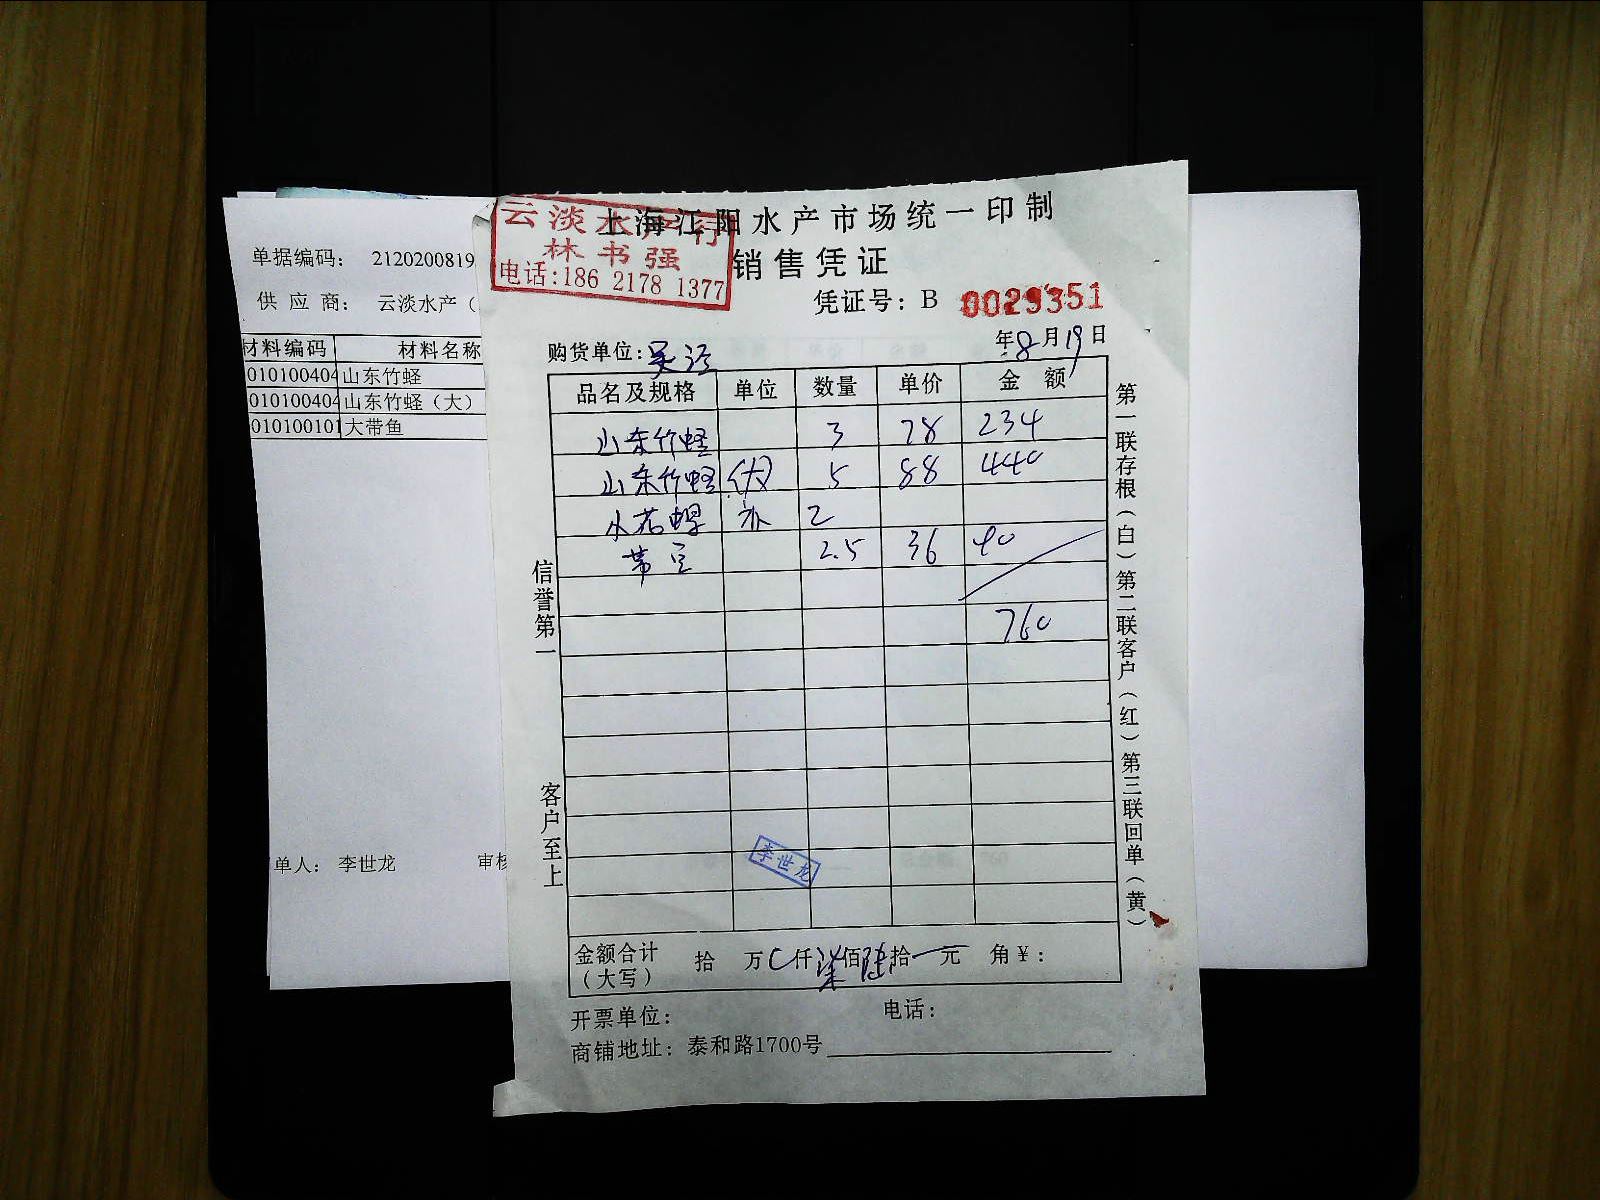 单据编码： 2120200819
供 应 商： 云淡水产（
材料编码 材料名称
010100404 山东竹蛏
010100404 山东竹蛏（大）
010100101 大带鱼
单人： 李世龙 审核
云淡水产行
林书强
电话:186 2178 1377
上海江阳水产市场统一印制
销售凭证
凭证号：B 0029351
年8月19日
购货单位:吴泾
品名及规格 单位 数量 单价 金 额
山东竹蛏 3 78 234
山东竹蛏(大) 5 88 440
水花螺 补 2
带 2.5 36 90
760
李世龙
金额合计（大写） 拾 万 仟柒佰陆拾 元 角￥：
开票单位： 电话：
商铺地址：泰和路1700号
信誉第一
客户至上
第一联存根（白）第二联客户（红）第三联回单（黄）